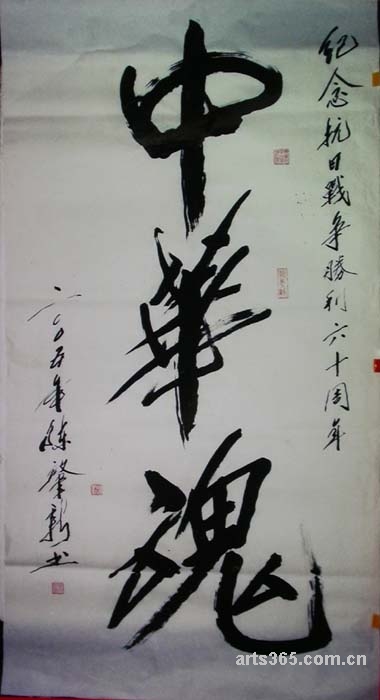 紀念抗日戰爭勝利六十周年
中華魂
二〇〇五年 肇新书
arts365.com.cn